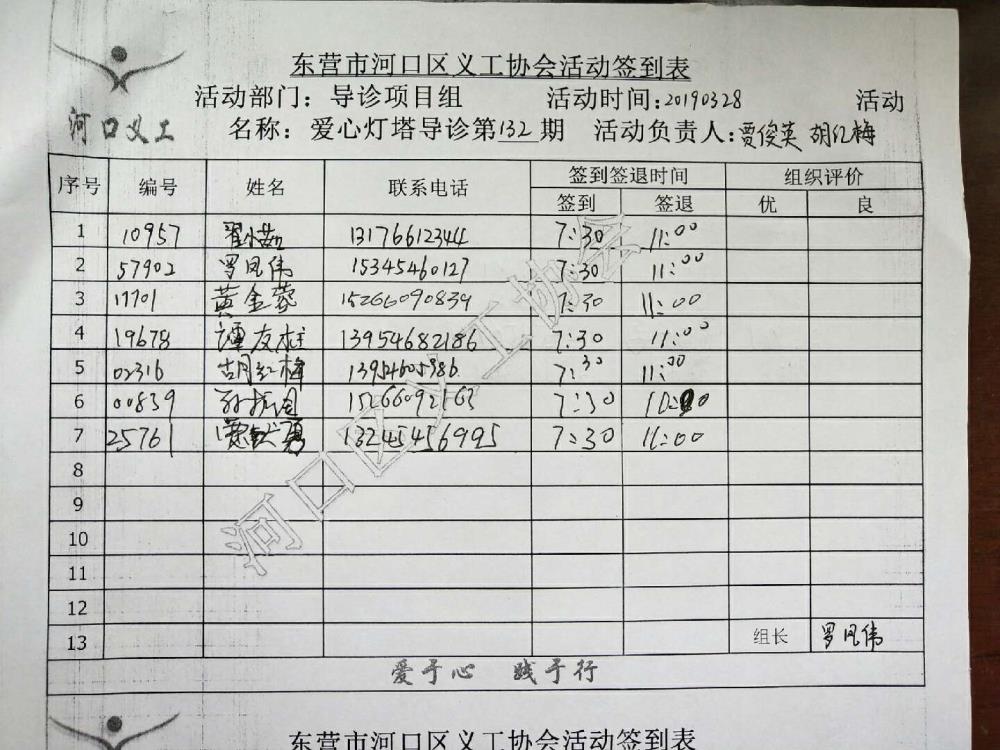 东营市河口区义工协会活动签到表
活动部门：导诊项目组 活动时间：20190328 活动
河口义工
名称：爱心灯塔导诊第132期 活动负责人：贾俊英 胡红梅
序号 编号 姓名 联系电话 签到签退时间 组织评价
签到 签退 优 良
1 10957 13176612344 7:30 11:00
2 57902 罗凤伟 15345460127 7:30 11:00
3 17701 黄金蓉 15266090839 7:30 11:00
4 19678 谭友柱 13954682186 7:30 11:00
5 02316 胡红梅 13954605986 7:30 11:00
6 00839 15266092163 7:30
7 25761 13245456995 7:30 11:00
8
9
10
11
12
13 组长 罗凤伟
爱于心 践于行
河口区义工协会
东营市河口区义工协会活动签到表